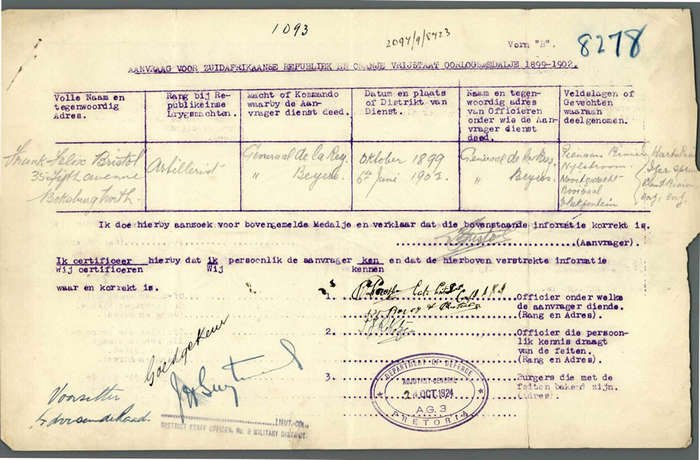 1093
2094/9/8423
Vorm "B".
8278
AANVRAAG VOOR ZUIDAFRIKAANSE REPUBLIEK EN ORANJE VRIJSTAAT OORLOGSMEDALJE 1899-1902.
Volle Naam en tegenwoordig Adres.
Rang bij Republikeinse Krygsmachten.
Macht of Kommando waarby de Aanvrager dienst deed.
Datum en plaats of Distrikt van Dienst.
Naam en tegenwoordig adres van Officieren onder wie de Aanvrager dienst deed.
Veldslagen of Gevechten waaraan deelgenomen.
Frank Felix Bristol
35 Fifth avenue
Boksburg North.
Artillerist
Generaal de la Rey
" Beyers
Oktober 1899
6th Juni 1902.
Generaal de la Rey
" Beyers
Pienaars River
Nylstroom
Nooitgedacht
Ik doe hierby aanzoek voor bovengemelde Medalje en verklaar dat die bovenstaande informatie korrekt is.
Bristol
(Aanvrager).
Ik certificeer hierby dat ik persoonlik de aanvrager ken en dat de hierboven verstrekte informatie
Wij certificeren Wij kennen
waar en korrekt is.
1.
Officier onder welke de aanvrager diende. (Rang en Adres).
2.
Officier die persoonlik kennis draagt van de feiten. (Rang en Adres).
3.
Burgers die met de feiten bekend zijn. (Adres).
Goedgekeur
Voorsitter
LIEUT-COL.
DISTRICT STAFF OFFICER, No. 8 MILITARY DISTRICT.
DEPARTMENT OF DEFENCE
ADJUTANT-GENERAL
OCT 1924
A.G. 3
PRETORIA